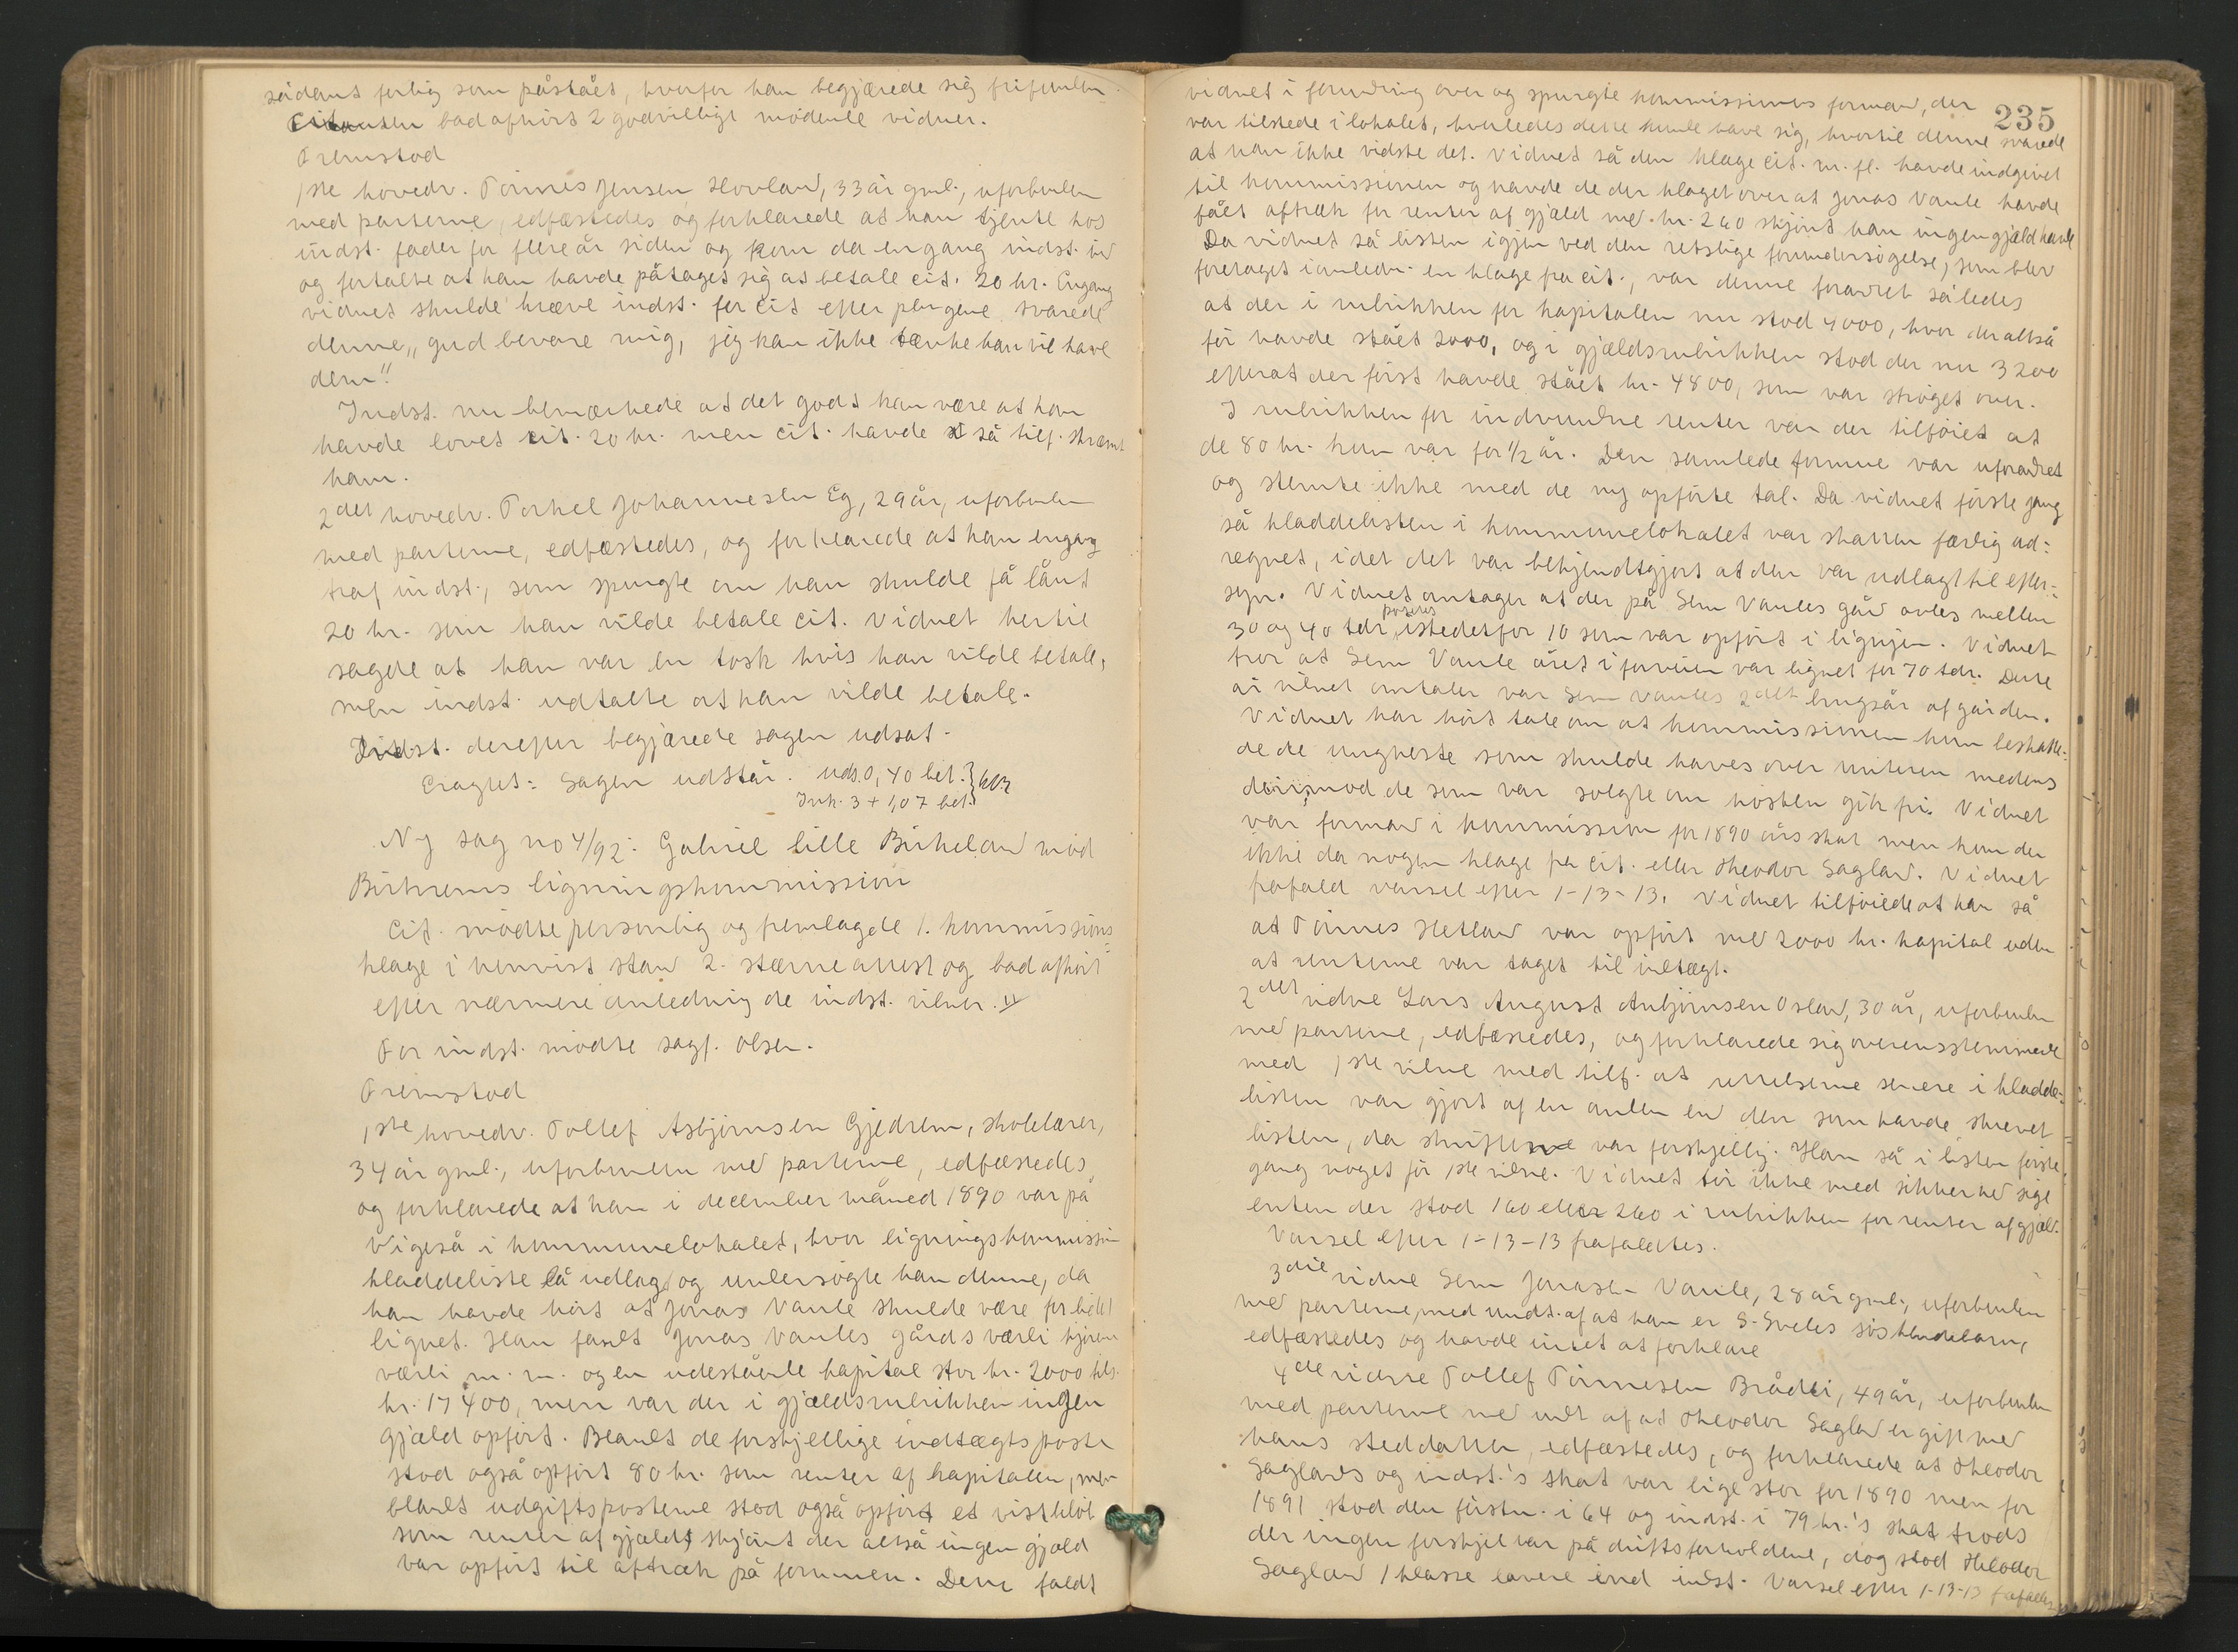 sådant forlig som påstået, hvorfor han begjærede sig frifunden
Citanten bad afhört 2 godvilligt mödende vidner.
Fremstod
1ste hovedv. Tönnes Jensen Hovland, 33 år gml., uforbunden
med parterne, edfæstedes og forklarede at han tjente hos
indst. fader for flere år siden og kom da engang indst. ind
og fortalte at han havde påtaget sig at betale cit. 20 kr. Engang
vidnet skulde kræve indst. for cit efter pengene svarede
denne „gud bevare mig, jeg kan ikke tænke han vil have
dem"
Indst. nu bemærkede at det godt kan være at han
havde lovet cit. 20 kr. men cit. havde så tilf. skræmt
ham.
2det hovedv. Torkel Johannesen Eg, 29 år, uforbunden
med parterne, edfæstedes, og forklarede at han engang
traf indst., som spurgte om han skulde få lånt
20 kr. som han vilde betale cit. Vidnet hertil
sagde at han var en tosk hvis han vilde betale,
men indst. udtalte at han vilde betale.
Indst. derefter begjærede sagen udsat.
Eragtet: Sagen udstår. Uds. 0,40 bet.
Ink. 3 + 1,07 bet.
Ny sag no 4/92: Gabriel lille Birkeland mod
Birkrems ligningskommission
Cit. mödte personlig og fremlagde 1. kommissions=
klage i henvist stand 2. stævneattest og bad afhört
efter nærmere anledning de indst. vidner.
For indst. mödte sagf. Olsen.
Fremstod
1ste hovedv. Tollef Asbjörnsen Gjedrem, skolelærer,
34 år gml., uforbunden med parterne, edfæstedes
og forklarede at han i december måned 1890 var på
Vigeså i kommunelokalet, hvor ligningskommissionens
kladdeliste lå udlagt og undersögte han denne, da
han havde hört at Jonas Vande skulde være for lidet
lignet. Han fandt Jonas Vandes gårds værdi
værdi m. m. og en udestående kapital stor kr. 2000 tils.
kr. 17400, men var der i gjældsrubrikken ingen
gjæld opfört. Blandt de forskjellige indtægtsposter
stod også opfört 80 kr. som renter af kapitalen, men
blandt udgiftsposterne stod også opfört et vist belöb
som renter af gjæld, skjönt der altså ingen gjæld
var opfört til aftræk på formuen. Dette faldt
235
vidnet i forundring over og spurgte kommissionens formand, der
var tilstede i lokalet, hvorledes dette kunde have sig, hvortil denne svarede
at han ikke vidste det. Vidnet så den klage cit. m. fl. havde indgivet
til kommissionen og havde de der klaget over at Jonas Vande havde
fået aftræk for renter af gjæld med kr. 260 skjönt han ingen gjæld havde
Da vidnet så listen igjen ved den retslige forundersögelse, som blev
foretaget i anledn. en klage fra cit., var denne forandret således
at der i rubrikken for kapitalen nu stod 4000, hvor der altså
för havde stået 2000, og i gjældsrubrikken stod der nu 3200
efterat der först havde stået kr. 4800, som var ströget over.
I rubrikken for indvundne renter var der tilföiet at
de 80 kr. kun var for 1/2 år. Den samlede formue var uforandret
og stemte ikke med de ny opförte tal. Da vidnet förste gang
så kladdelisten i kommunelokalet var skatten færdig ud=
regnet, idet det var bekjendtgjort at den var udlagt til efter=
syn. Vidnet antager at der på Sem Vandes gård avles mellem
30 og 40 tdr poteter istedetfor 10 som var opfört i lignjen. Vidnet
tror at Sem Vande året i forveien var lignet for 70 tdr. Dette
år vidnet omtaler var Sem Vandes 2det brugsår af gården.
Vidnet har hört tale om at kommissionen kun beskatte=
de de ungheste som skulde haves over vinteren medens
derimod de som var solgte om hösten gik fri. Vidnet
var formand i kommissionen for 1890 års skat men kom der
ikke da nogen klage fra cit. eller Theodor Sagland. Vidnet
frafaldt varsel efter 1-13-13. Vidnet tilföiede at han så
at Tönnes Hetland var opfört med 2000 kr. kapital uden
at renterne var taget til indtægt.
2det vidne Lars August Asbjörnsen Osland, 30 år, uforbunden
med parterne, edfæstedes, og forklarede sig overensstemmende
med 1ste vidne med tilf. at rettelserne senere i kladde=
listen var gjort af en anden end den som havde skrevet
listen, da skrifterne var forskjellig. Han så i listen förste
gang noget för 1ste vidne. Vidnet tör ikke med sikkerhed sige
enten der stod 160 eller 260 i rubrikken for renter af gjæld.
Varsel efter 1-13-13 frafaldtes.
3die vidne Sem Jonasen Vande, 28 år gml., uforbunden
med parterne, med undt. af at han er S. Sveles söskendebarn,
edfæstedes og havde intet at forklare
4de vidne Tollef Tönnesen Brådli, 49 år, uforbunden
med parterne med undt af at Theodor Sagland er gift med
hans steddatter, edfæstedes, og forklarede at Theodor
Saglands og indst.'s skat var lige stor for 1890 men for
1891 stod den förstn. i 64 og indst. i 79 kr.'s skat trods
der ingen forskjel var på driftsforholdene, dog stod Theodor
Sagland 1 klasse lavere end indst. Varsel efter 1-13-13 frafaldtes